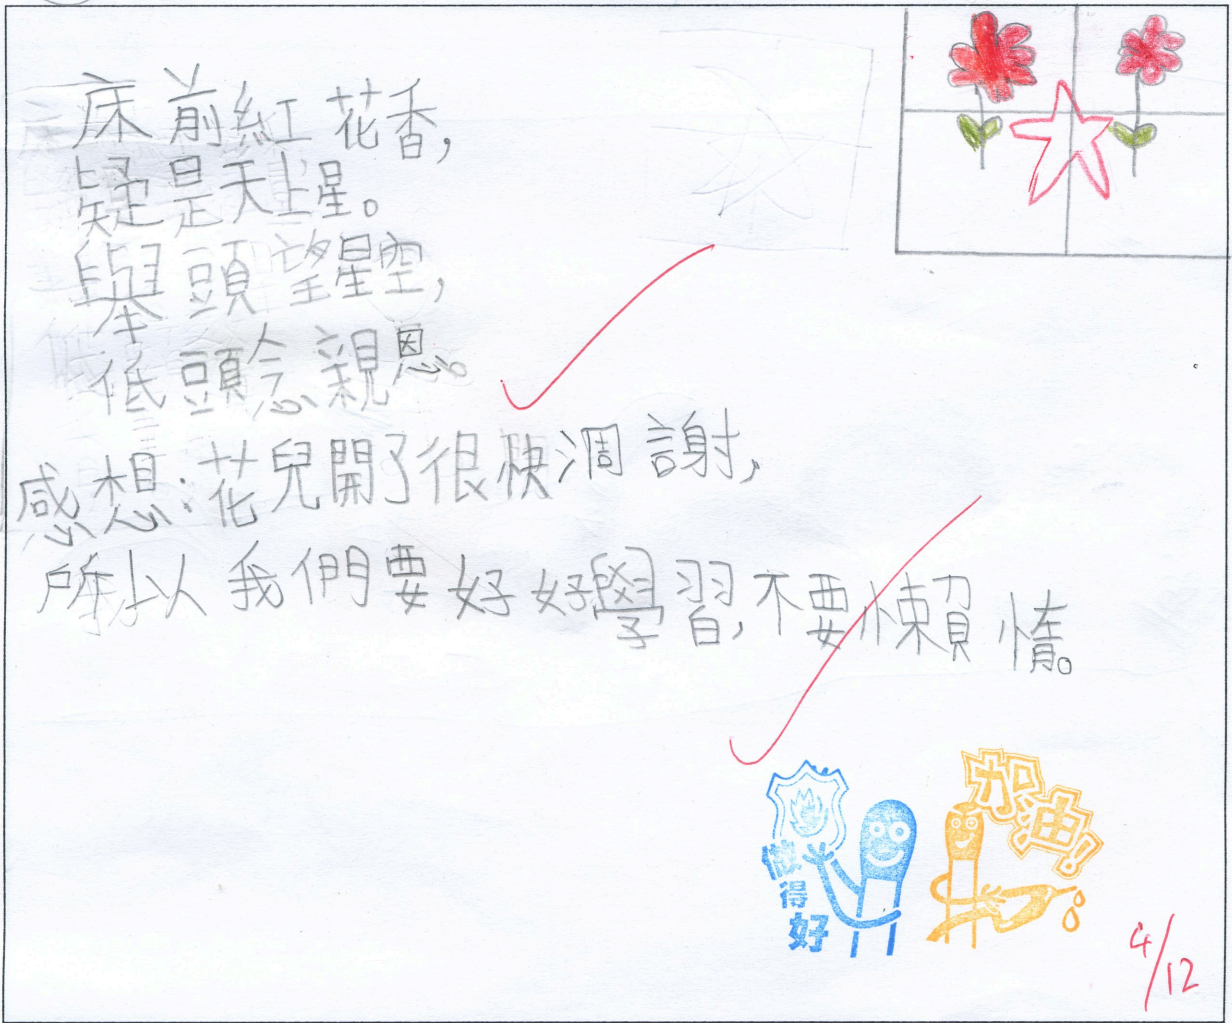 床前紅花香，
疑是天上星。
舉頭望星空，
低頭念親恩。
感想：花兒開了很快凋謝，
所以我們要好好學習，不要懶惰。
做得好
加油！
4/12